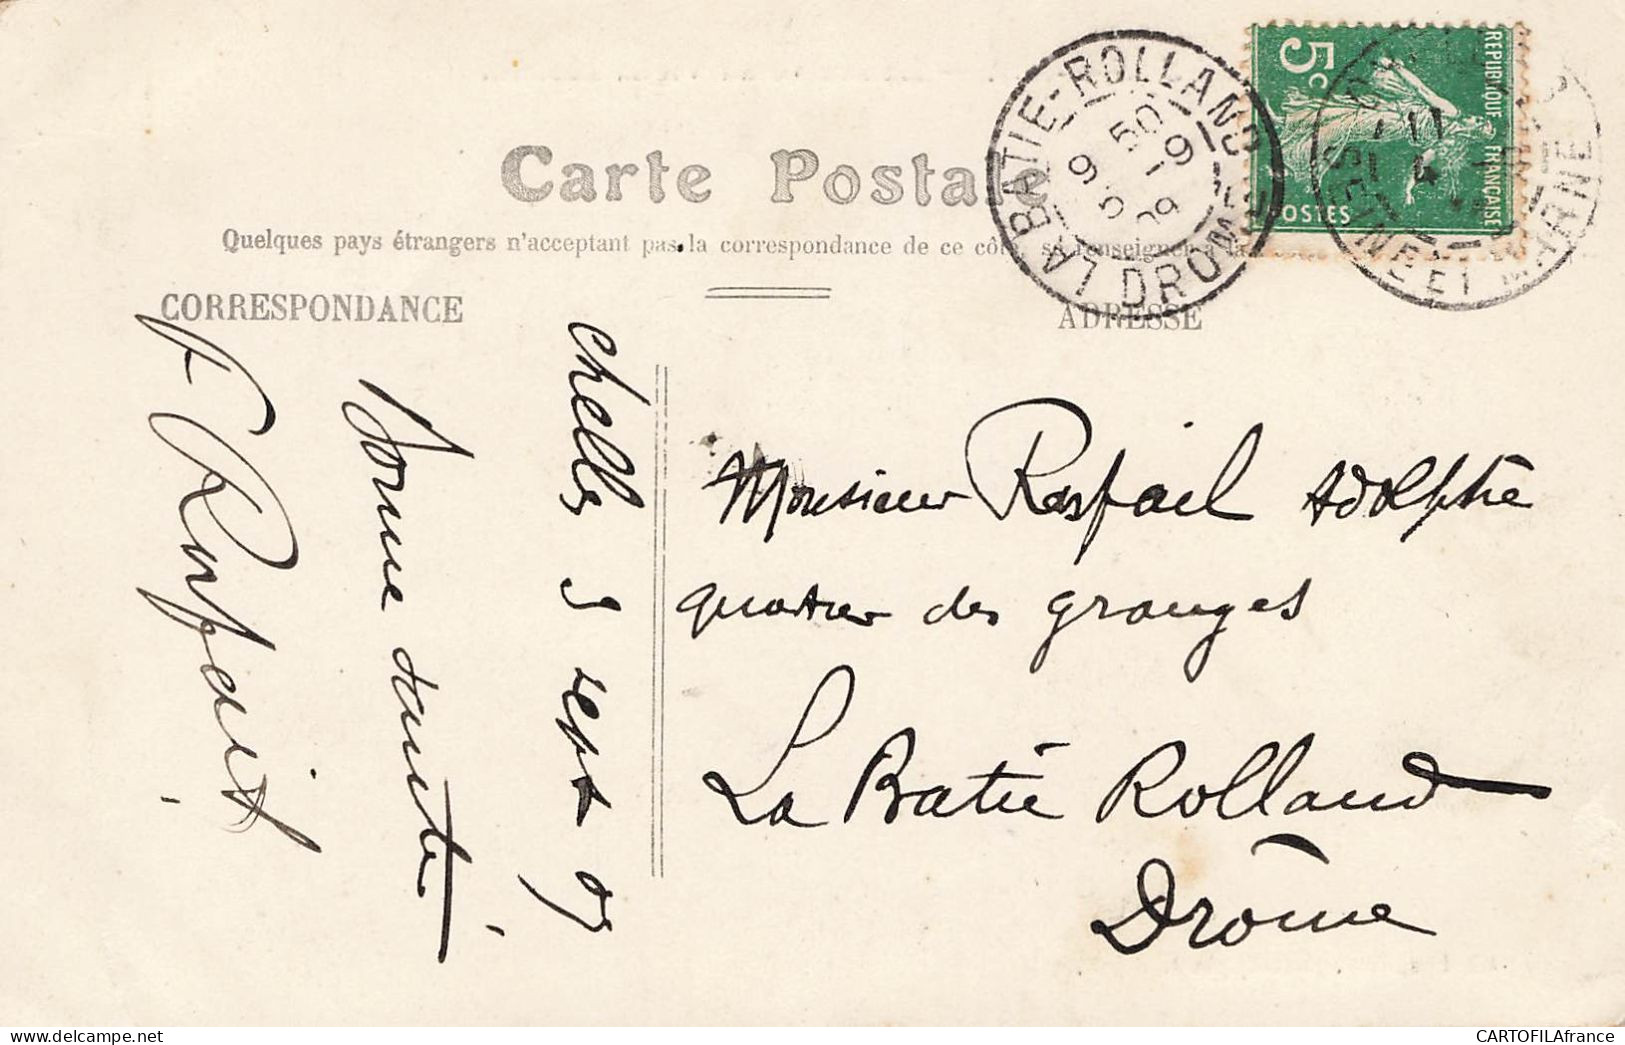 Carte Postale
Quelques pays étrangers n'acceptent pas la correspondance de ce côté, se renseigner à la
CORRESPONDANCE
ADRESSE
LA BATIE-ROLLAND
9 50
5 -9
09
DROME
5c
REPUBLIQUE FRANÇAISE
POSTES
11
4
SEINE ET MARNE
chelles 3 sept 09
Bonne santé
Monsieur Raspail Adolphe
quartier des granges
La Batie Rolland
Drôme
CARTOFILAfrance